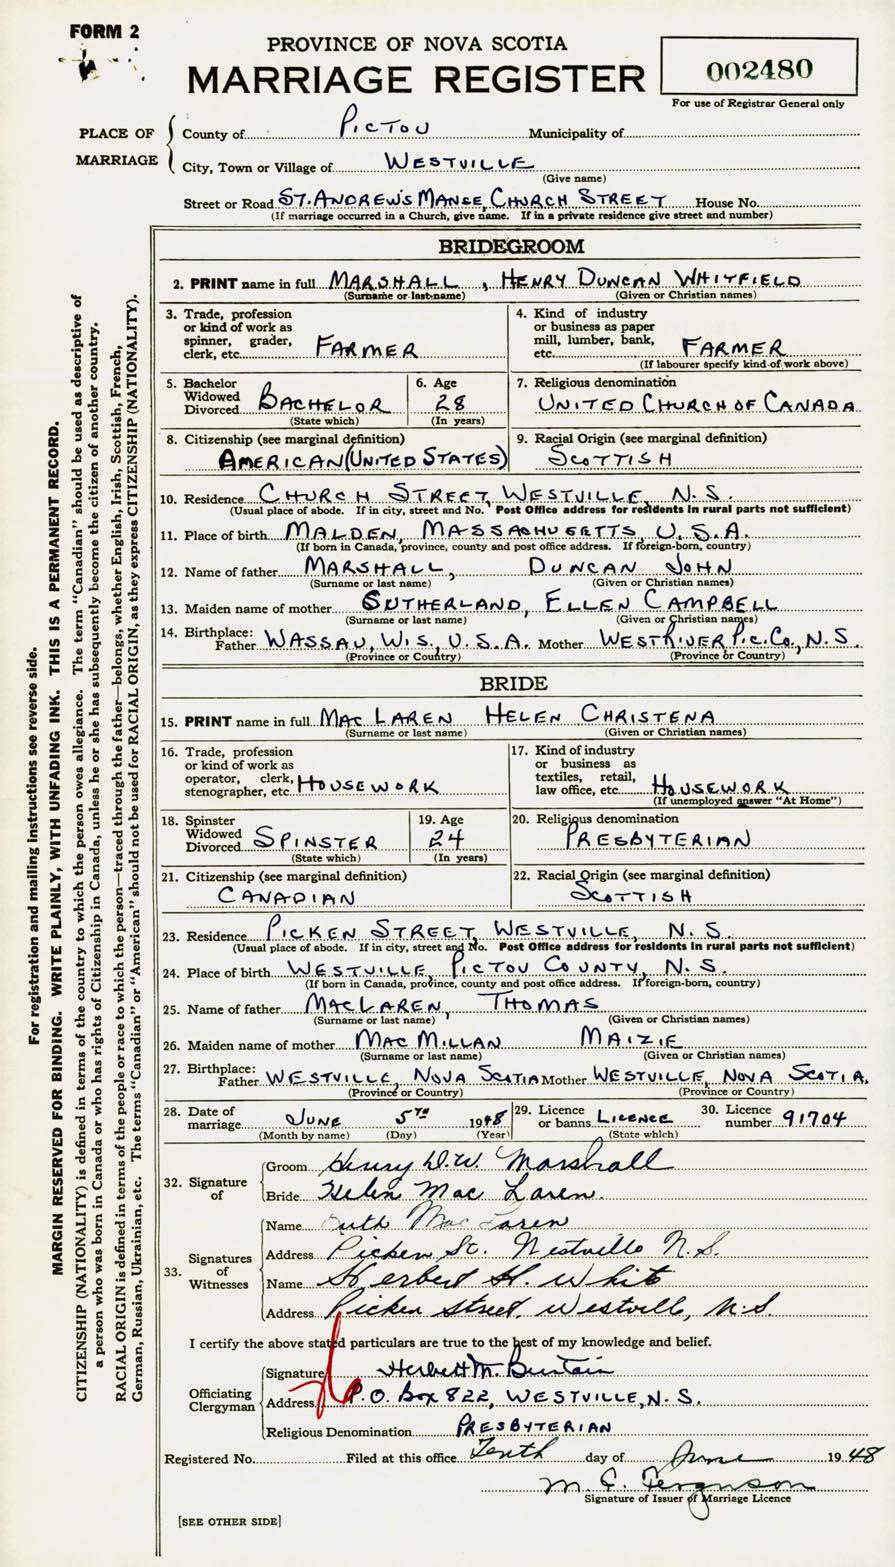 FORM 2
PROVINCE OF NOVA SCOTIA
MARRIAGE REGISTER
002480
For use of Registrar General only
PLACE OF MARRIAGE
County of PICTOU Municipality of
City, Town or Village of WESTVILLE
(Give name)
Street or Road ST. ANDREW'S MANSE, CHURCH STREET House No.
(If marriage occurred in a Church, give name. If in a private residence give street and number)
BRIDEGROOM
2. PRINT name in full MARSHALL, HENRY DUNCAN WHITFIELD
(Surname or last name) (Given or Christian names)
3. Trade, profession or kind of work as spinner, grader, clerk, etc. FARMER
4. Kind of industry or business as paper mill, lumber, bank, etc. FARMER
(If labourer specify kind of work above)
5. Bachelor Widowed Divorced BACHELOR
(State which)
6. Age 28
(In years)
7. Religious denomination
UNITED CHURCH OF CANADA
8. Citizenship (see marginal definition)
AMERICAN (UNITED STATES)
9. Racial Origin (see marginal definition)
SCOTTISH
10. Residence CHURCH STREET, WESTVILLE, N.S.
(Usual place of abode. If in city, street and No. Post Office address for residents in rural parts not sufficient)
11. Place of birth MALDEN, MASSACHUSETTS, U.S.A.
(If born in Canada, province, county and post office address. If foreign-born, country)
12. Name of father MARSHALL, DUNCAN JOHN
(Surname or last name) (Given or Christian names)
13. Maiden name of mother SUTHERLAND, ELLEN CAMPBELL
(Surname or last name) (Given or Christian names)
14. Birthplace:
Father WASSAU, WIS., U.S.A. Mother WEST RIVER PIC. CO., N.S.
(Province or Country) (Province or Country)
BRIDE
15. PRINT name in full MAC LAREN HELEN CHRISTENA
(Surname or last name) (Given or Christian names)
16. Trade, profession or kind of work as operator, clerk, stenographer, etc. HOUSEWORK
17. Kind of industry or business as textiles, retail, law office, etc. HOUSEWORK
(If unemployed answer "At Home")
18. Spinster Widowed Divorced SPINSTER
(State which)
19. Age 24
(In years)
20. Religious denomination
PRESBYTERIAN
21. Citizenship (see marginal definition)
CANADIAN
22. Racial Origin (see marginal definition)
SCOTTISH
23. Residence PICKEN STREET, WESTVILLE, N.S.
(Usual place of abode. If in city, street and No. Post Office address for residents in rural parts not sufficient)
24. Place of birth WESTVILLE, PICTOU COUNTY, N.S.
(If born in Canada, province, county and post office address. If foreign-born, country)
25. Name of father MACLAREN, THOMAS
(Surname or last name) (Given or Christian names)
26. Maiden name of mother MAC MILLAN MAIZIE
(Surname or last name) (Given or Christian names)
27. Birthplace:
Father WESTVILLE, NOVA SCOTIA Mother WESTVILLE, NOVA SCOTIA.
(Province or Country) (Province or Country)
28. Date of marriage JUNE 5TH 1948
(Month by name) (Day) (Year)
29. Licence or banns LICENCE
(State which)
30. Licence number 91704
32. Signature of
Groom Henry D.W. Marshall
Bride Helen Mac Laren.
33. Signatures of Witnesses
Name Ruth Mac Laren
Address Picken St. Westville N.S.
Name Herbert H. White
Address Picken Street, Westville, N.S.
I certify the above stated particulars are true to the best of my knowledge and belief.
Officiating Clergyman
Signature Herbert M.
Address P.O. Box 822, WESTVILLE, N.S.
Religious Denomination PRESBYTERIAN
Registered No. Filed at this office Tenth day of June 1948
M. C. Ferguson
Signature of Issuer of Marriage Licence
[SEE OTHER SIDE]
For registration and mailing instructions see reverse side.
MARGIN RESERVED FOR BINDING. WRITE PLAINLY, WITH UNFADING INK. THIS IS A PERMANENT RECORD.
CITIZENSHIP (NATIONALITY) is defined in terms of the country to which the person owes allegiance. The term "Canadian" should be used as descriptive of
a person who was born in Canada or who has rights of Citizenship in Canada, unless he or she has subsequently become the citizen of another country.
RACIAL ORIGIN is defined in terms of the people or race to which the person—traced through the father—belongs, whether English, Irish, Scottish, French,
German, Russian, Ukrainian, etc. The terms "Canadian" or "American" should not be used for RACIAL ORIGIN, as they express CITIZENSHIP (NATIONALITY).